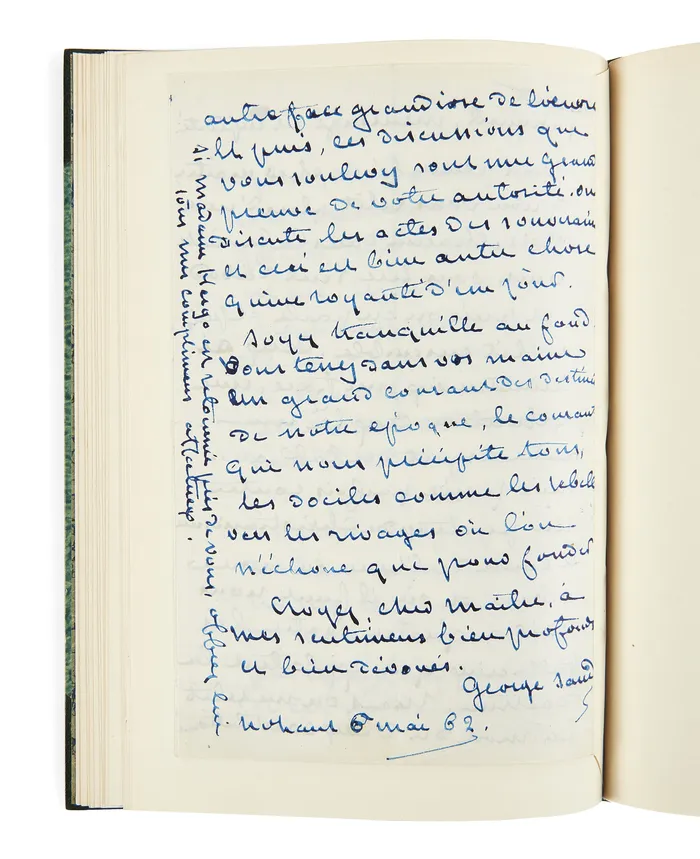 autre face grandiose de l'œuvre
Et puis, ces discussions que
vous soulevez sont une grande
preuve de votre autorité. on
discute les actes des souverains
et ceci est bien autre chose
qu'une royauté d'un jour.
Soyez tranquille au fond.
Vous tenez dans vos mains
un grand courant des destinées
de notre epoque, le courant
qui nous précipite tous,
les dociles comme les rebelles
vers les rivages où l'on
n'échoue que pour fonder
Croyez, cher maître, à
mes sentimens bien profonds
et bien dévoués.
George Sand
Nohant 6 mai 62.
si madame Hugo est retournée près de vous, offrez lui
tous mes complimens affectueux.